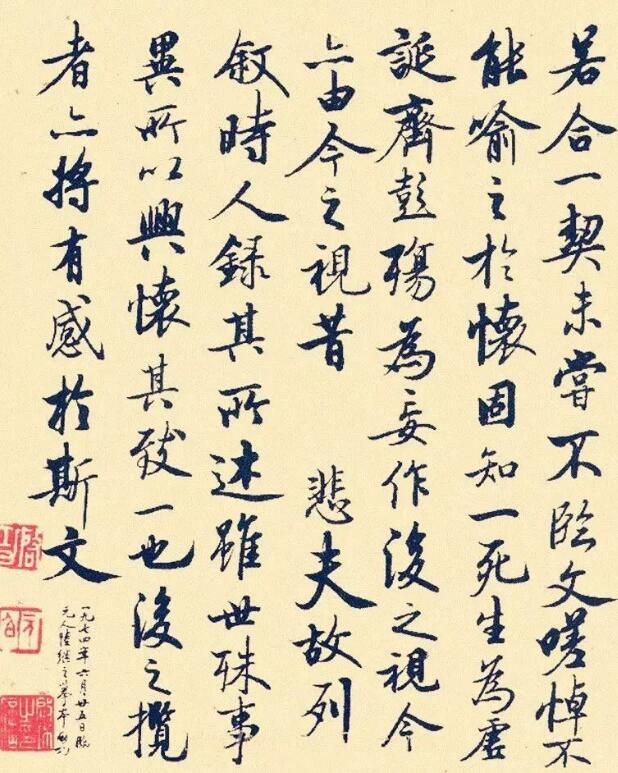 若合一契未嘗不臨文嗟悼不
能喻之於懷固知一死生為虛
誕齊彭殤為妄作後之視今
亦由今之視昔 悲夫故列
叙時人錄其所述雖世殊事
異所以興懷其致一也後之攬
者亦將有感於斯文
一九七四年六月廿五日臨
元人陸繼之摹本 啟功